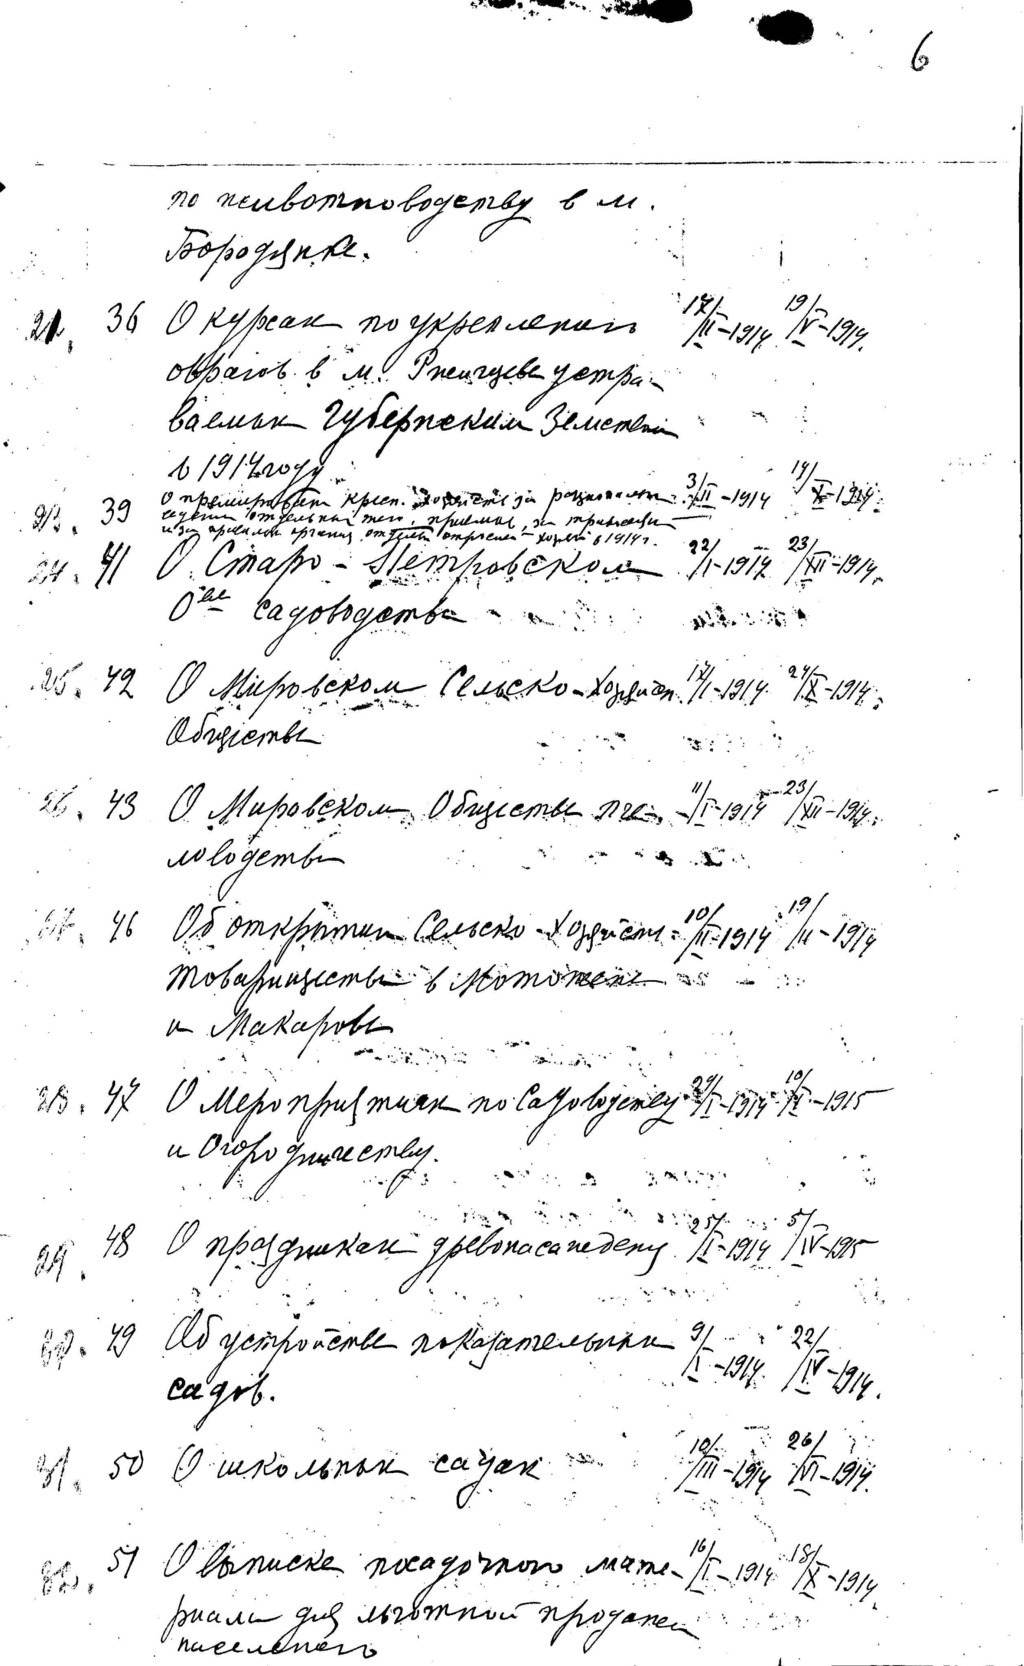 6
по животноводству в м.
Бородянке.
21. 36 О курсах по укреплению 17/II-1914 19/V-1914.
оврагов в м. Ржищеве устра-
ваемых Губернским Земством
в 1914 году
39 О премировании крест. хозяйств за рациональн. 3/III-1914 14/X-1914.
за травосеян
и за орган. отраслей хозяй. в 1914 г.
24. 41 О Старо-Петровском 22/I-1914 23/XII-1914.
О-ве садоводства
25. 42 О Мировском Сельско-Хозяйств. 17/I-1914 24/X-1914.
Обществе
26. 43 О Мировском Обществе пче- 11/I-1914 23/XII-1914.
ловодства
27. 46 Об открытии Сельско-Хозяйств. 10/II-1914 19/II-1914
товарищества в Мотыжене
и Макарове
28. 47 О Мероприятиях по Садоводству 29/I-1914 10/II-1915
и Огородничеству.
29. 48 О праздниках древонасаждения 25/I-1914 5/IV-1915
30. 49 Об устройстве показательных 9/I-1914. 22/IV-1914.
садов.
31. 50 О школьных садах 10/III-1914 26/VI-1914.
32. 51 О выписке посадочного мате- 16/I-1914 18/X-1914.
риала для льготной продажи
населению